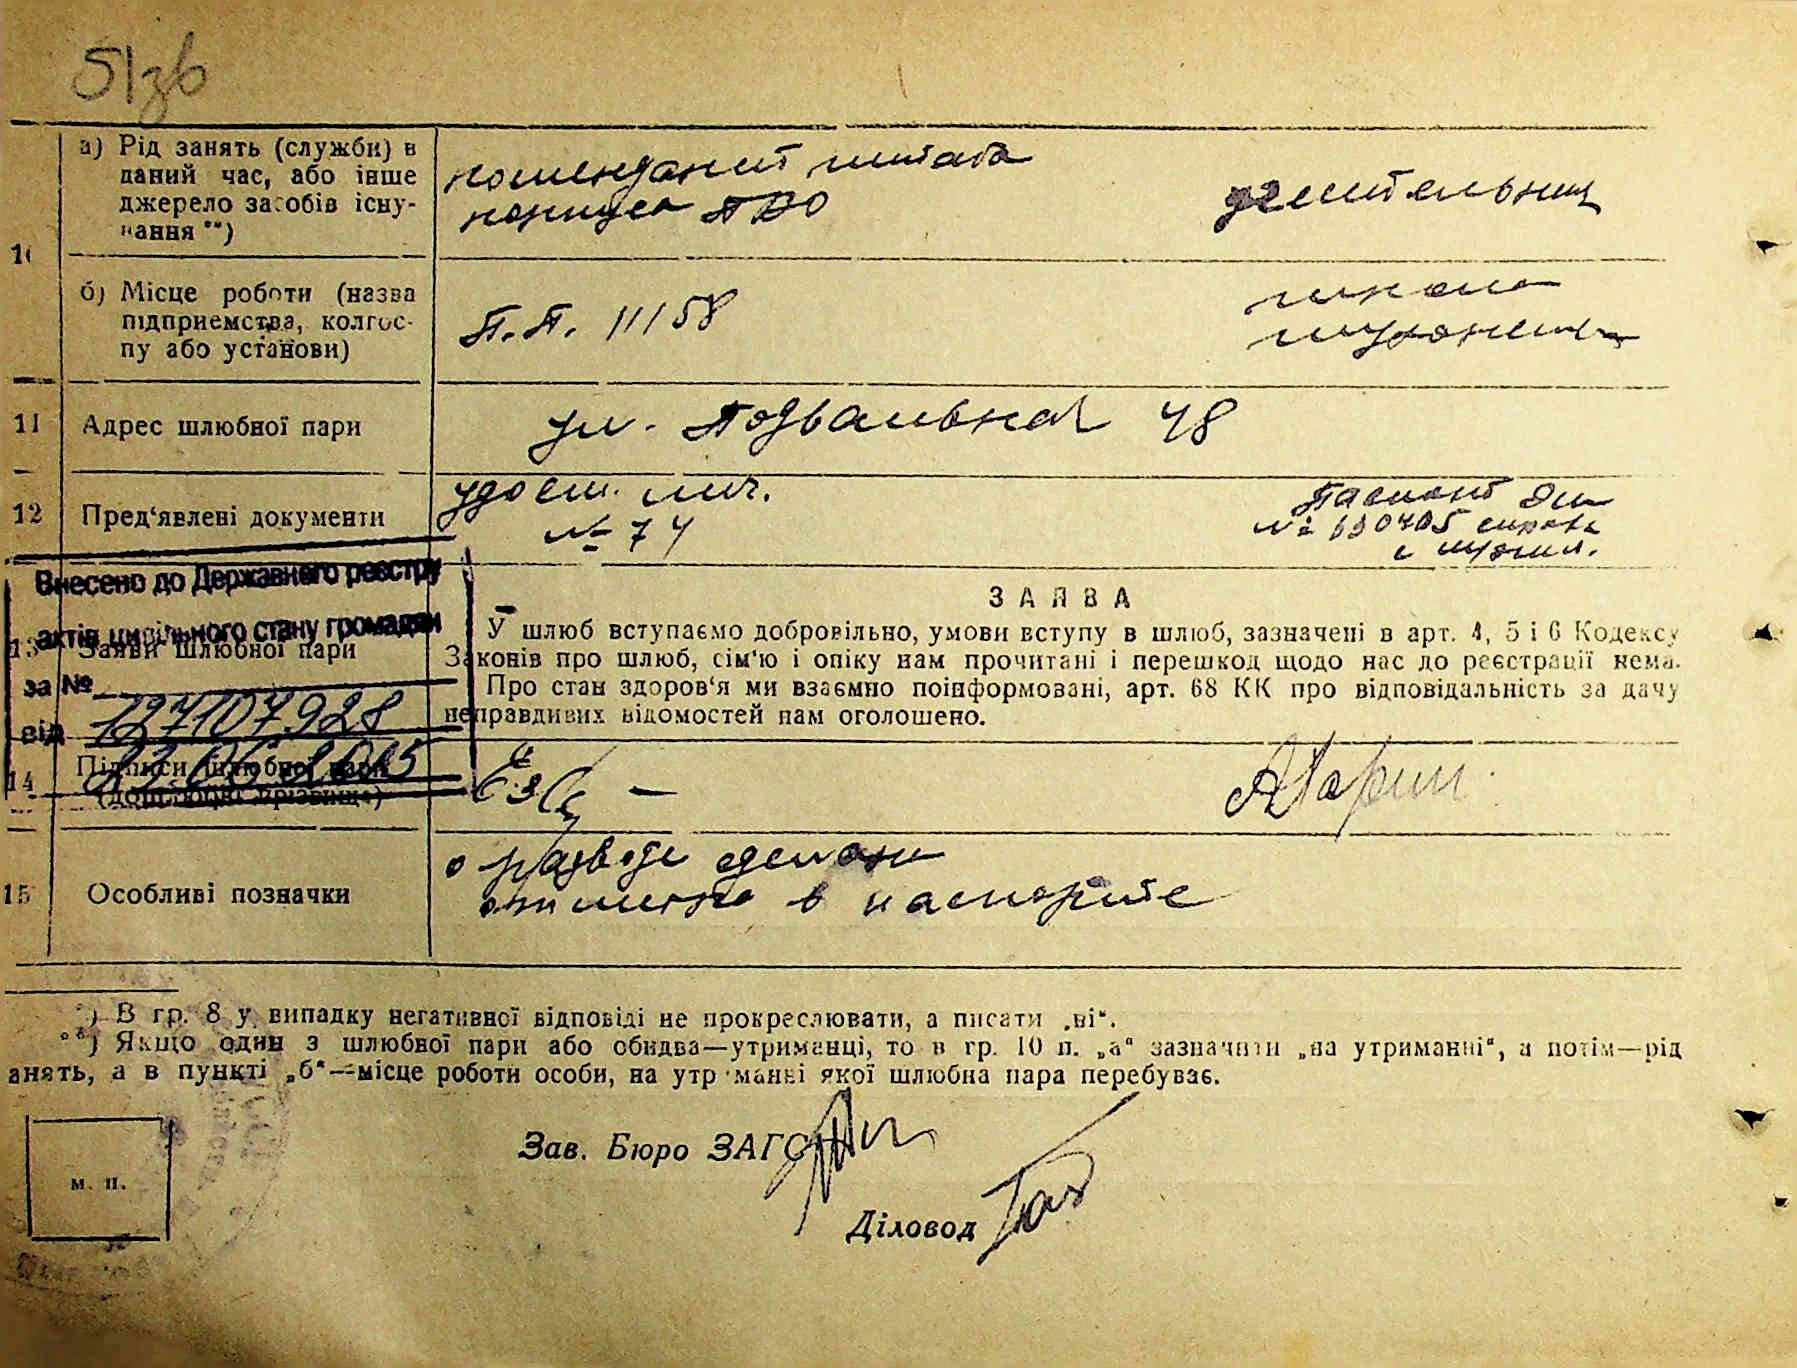 51зв
а) Рід занять (служби) в
даний час, або інше
джерело засобів існу-
вання **)
комендант штаба
корпуса ПВО
учительниц
10
б) Місце роботи (назва
підприємства, колгос-
пу або установи)
П.П. 11158
школа
11 Адрес шлюбної пари
ул. Подвальная 48
12 Пред‘явлені документи
удост. лич.
№ 74
Паспорт
№ 690405 справка
Внесено до Державного реєстру
актів цивільного стану громадян
за № 127107928
від 2015
13 Заяви шлюбної пари
ЗАЯВА
У шлюб вступаємо добровільно, умови вступу в шлюб, зазначені в арт. 4, 5 і 6 Кодексу
Законів про шлюб, сім‘ю і опіку нам прочитані і перешкод щодо нас до реєстрації нема.
Про стан здоров‘я ми взаємно поінформовані, арт. 68 КК про відповідальність за дачу
неправдивих відомостей нам оголошено.
14 Підписи шлюбної пари
(дошлюбні прізвища)
15 Особливі позначки
о разводе сделана
отметка в паспорте
*) В гр. 8 у випадку негативної відповіді не прокреслювати, а писати „ні“.
**) Якщо один з шлюбної пари або обидва—утриманці, то в гр. 10 п. „а“ зазначити „на утриманні“, а потім—рід
анять, а в пункті „б“—місце роботи особи, на утриманні якої шлюбна пара перебуває.
м. п.
Зав. Бюро ЗАГС
Діловод